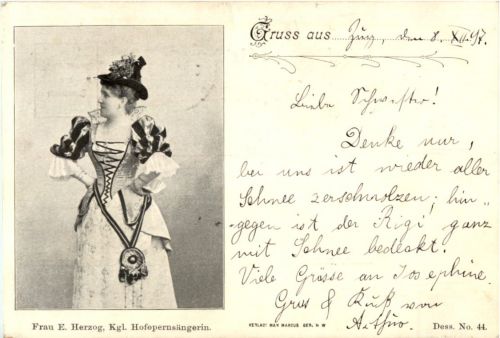 Gruss aus Zug, den 8. XII. 97.
Liebe Schwester!
Denke nur,
bei uns ist wieder aller
Schnee zerschmolzen; hin-
gegen ist der Rigi ganz
mit Schnee bedeckt.
Viele Grüsse an Josephine.
Gruss & Kuß von
Arthur.
Frau E. Herzog, Kgl. Hofopernsängerin.
VERLAG MAX MARCUS BER. N W
Dess. No. 44.